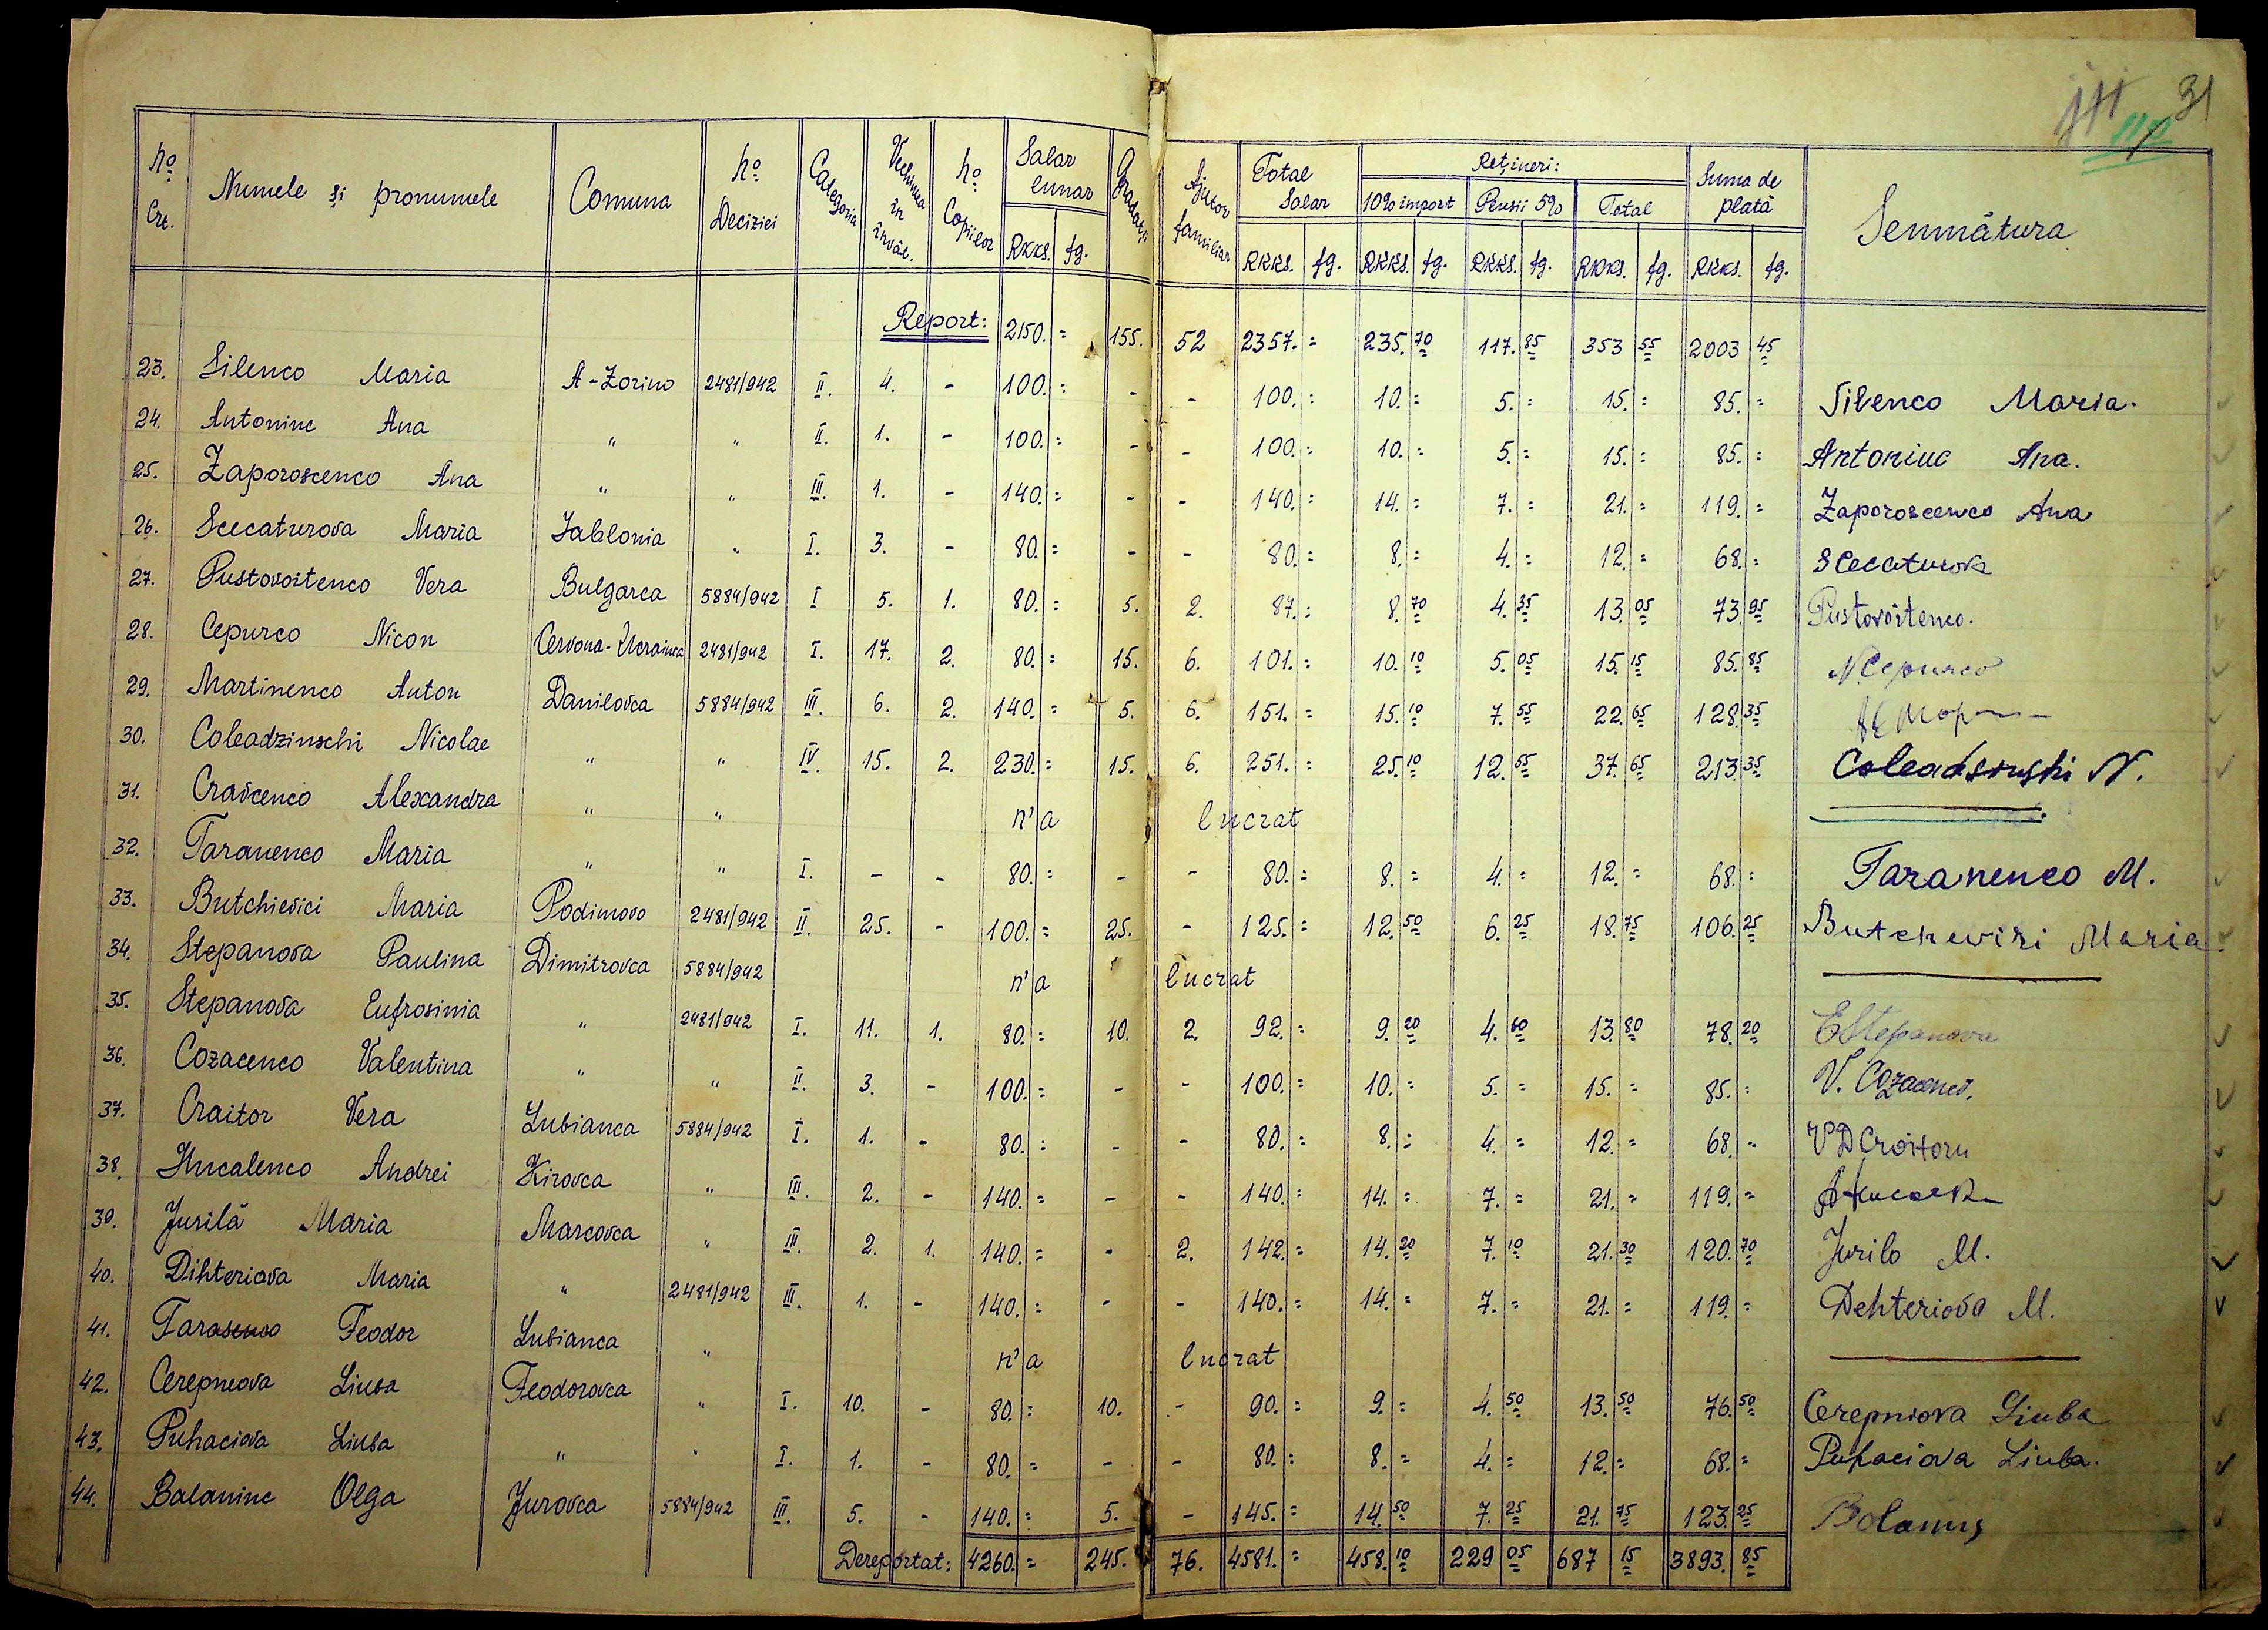 31
112
No Crt. Numele și pronumele Comuna No Deciziei Categoria Vechimea în învăț. No Copiilor Salar lunar Gradații Ajutor familiar Total Salar Rețineri: Suma de plată Semnătura
10% import Pensii 5% Total
RKKS. fg. RKKS. fg. RKKS. fg. RKKS. fg. RKKS. fg. RKKS. fg.
Report: 2150. = 155. 52 2357. = 235. 70 117. 85 353 55 2003 45
23. Silenco Maria A-Zorino 2481/942 II. 4. - 100. = - - 100. = 10. = 5. = 15. = 85. = Silenco Maria.
24. Antoninc Ana " " II. 1. - 100. = - - 100. = 10. = 5. = 15. = 85. = Antoninc Ana.
25. Zaporoscenco Ana " " III. 1. - 140. = - - 140. = 14. = 7. = 21. = 119. = Zaporoscenco Ana
26. Scecaturova Maria Jablonia " I. 3. - 80. = - - 80. = 8. = 4. = 12. = 68. = Scecaturova
27. Pustovoitenco Vera Bulgarca 5884/942 I 5. 1. 80. = 5. 2. 87. = 8. 70 4. 35 13. 05 73. 95 Pustovoitenco.
28. Cepurco Nicon Cervona-Ucrainca 2481/942 I. 17. 2. 80. = 15. 6. 101. = 10. 10 5. 05 15. 15 85. 85 N.Cepurco
29. Martinenco Anton Danilovca 5884/942 III. 6. 2. 140. = 5. 6. 151. = 15. 10 7. 55 22. 65 128. 35
30. Coleadzinschi Nicolae " " IV. 15. 2. 230. = 15. 6. 251. = 25. 10 12. 55 37. 65 213. 35 Coleadsinski N.
31. Cravcenco Alexandra " " n'a lucrat
32. Taranenco Maria " " I. - - 80. = - - 80. = 8. = 4. = 12. = 68. = Taranenco M.
33. Butchievici Maria Podimovo 2481/942 II. 25. - 100. = 25. - 125. = 12. 50 6. 25 18. 75 106. 25 Butchewizi Maria.
34. Stepanova Paulina Dimitrovca 5884/942 n'a lucrat
35. Stepanova Eufrosinia " 2481/942 I. 11. 1. 80. = 10. 2. 92. = 9. 20 4. 60 13. 80 78. 20 EStepanova
36. Cozacenco Valentina " " II. 3. - 100. = - - 100. = 10. = 5. = 15. = 85. = V. Cozacenco.
37. Craitor Vera Lubianca 5884/942 I. 1. - 80. = - - 80. = 8. = 4. = 12. = 68. = VDCroitoru
38. Hucalenco Andrei Kirovca " III. 2. - 140. = - - 140. = 14. = 7. = 21. = 119. =
39. Jurilă Maria Marcovca " III. 2. 1. 140. = - 2. 142. = 14. 20 7. 10 21. 30 120. 70 Jurilo M.
40. Dihteriova Maria " 2481/942 III. 1. - 140. = - - 140. = 14. = 7. = 21. = 119. = Dehteriova M.
41. Tarasenco Feodor Lubianca " n'a lucrat
42. Cerepneova Liuba Feodorovca " I. 10. - 80. = 10. - 90. = 9. = 4. 50 13. 50 76. 50 Cerepniova Liuba
43. Puhaciova Liuba " " I. 1. - 80. = - - 80. = 8. = 4. = 12. = 68. = Puhaciova Liuba.
44. Balaninc Olga Jurovca 5884/942 III. 5. - 140. = 5. - 145. = 14. 50 7. 25 21. 75 123. 25
Dereportat: 4260. = 245. 76. 4581. = 458. 10 229 05 687 15 3893. 85